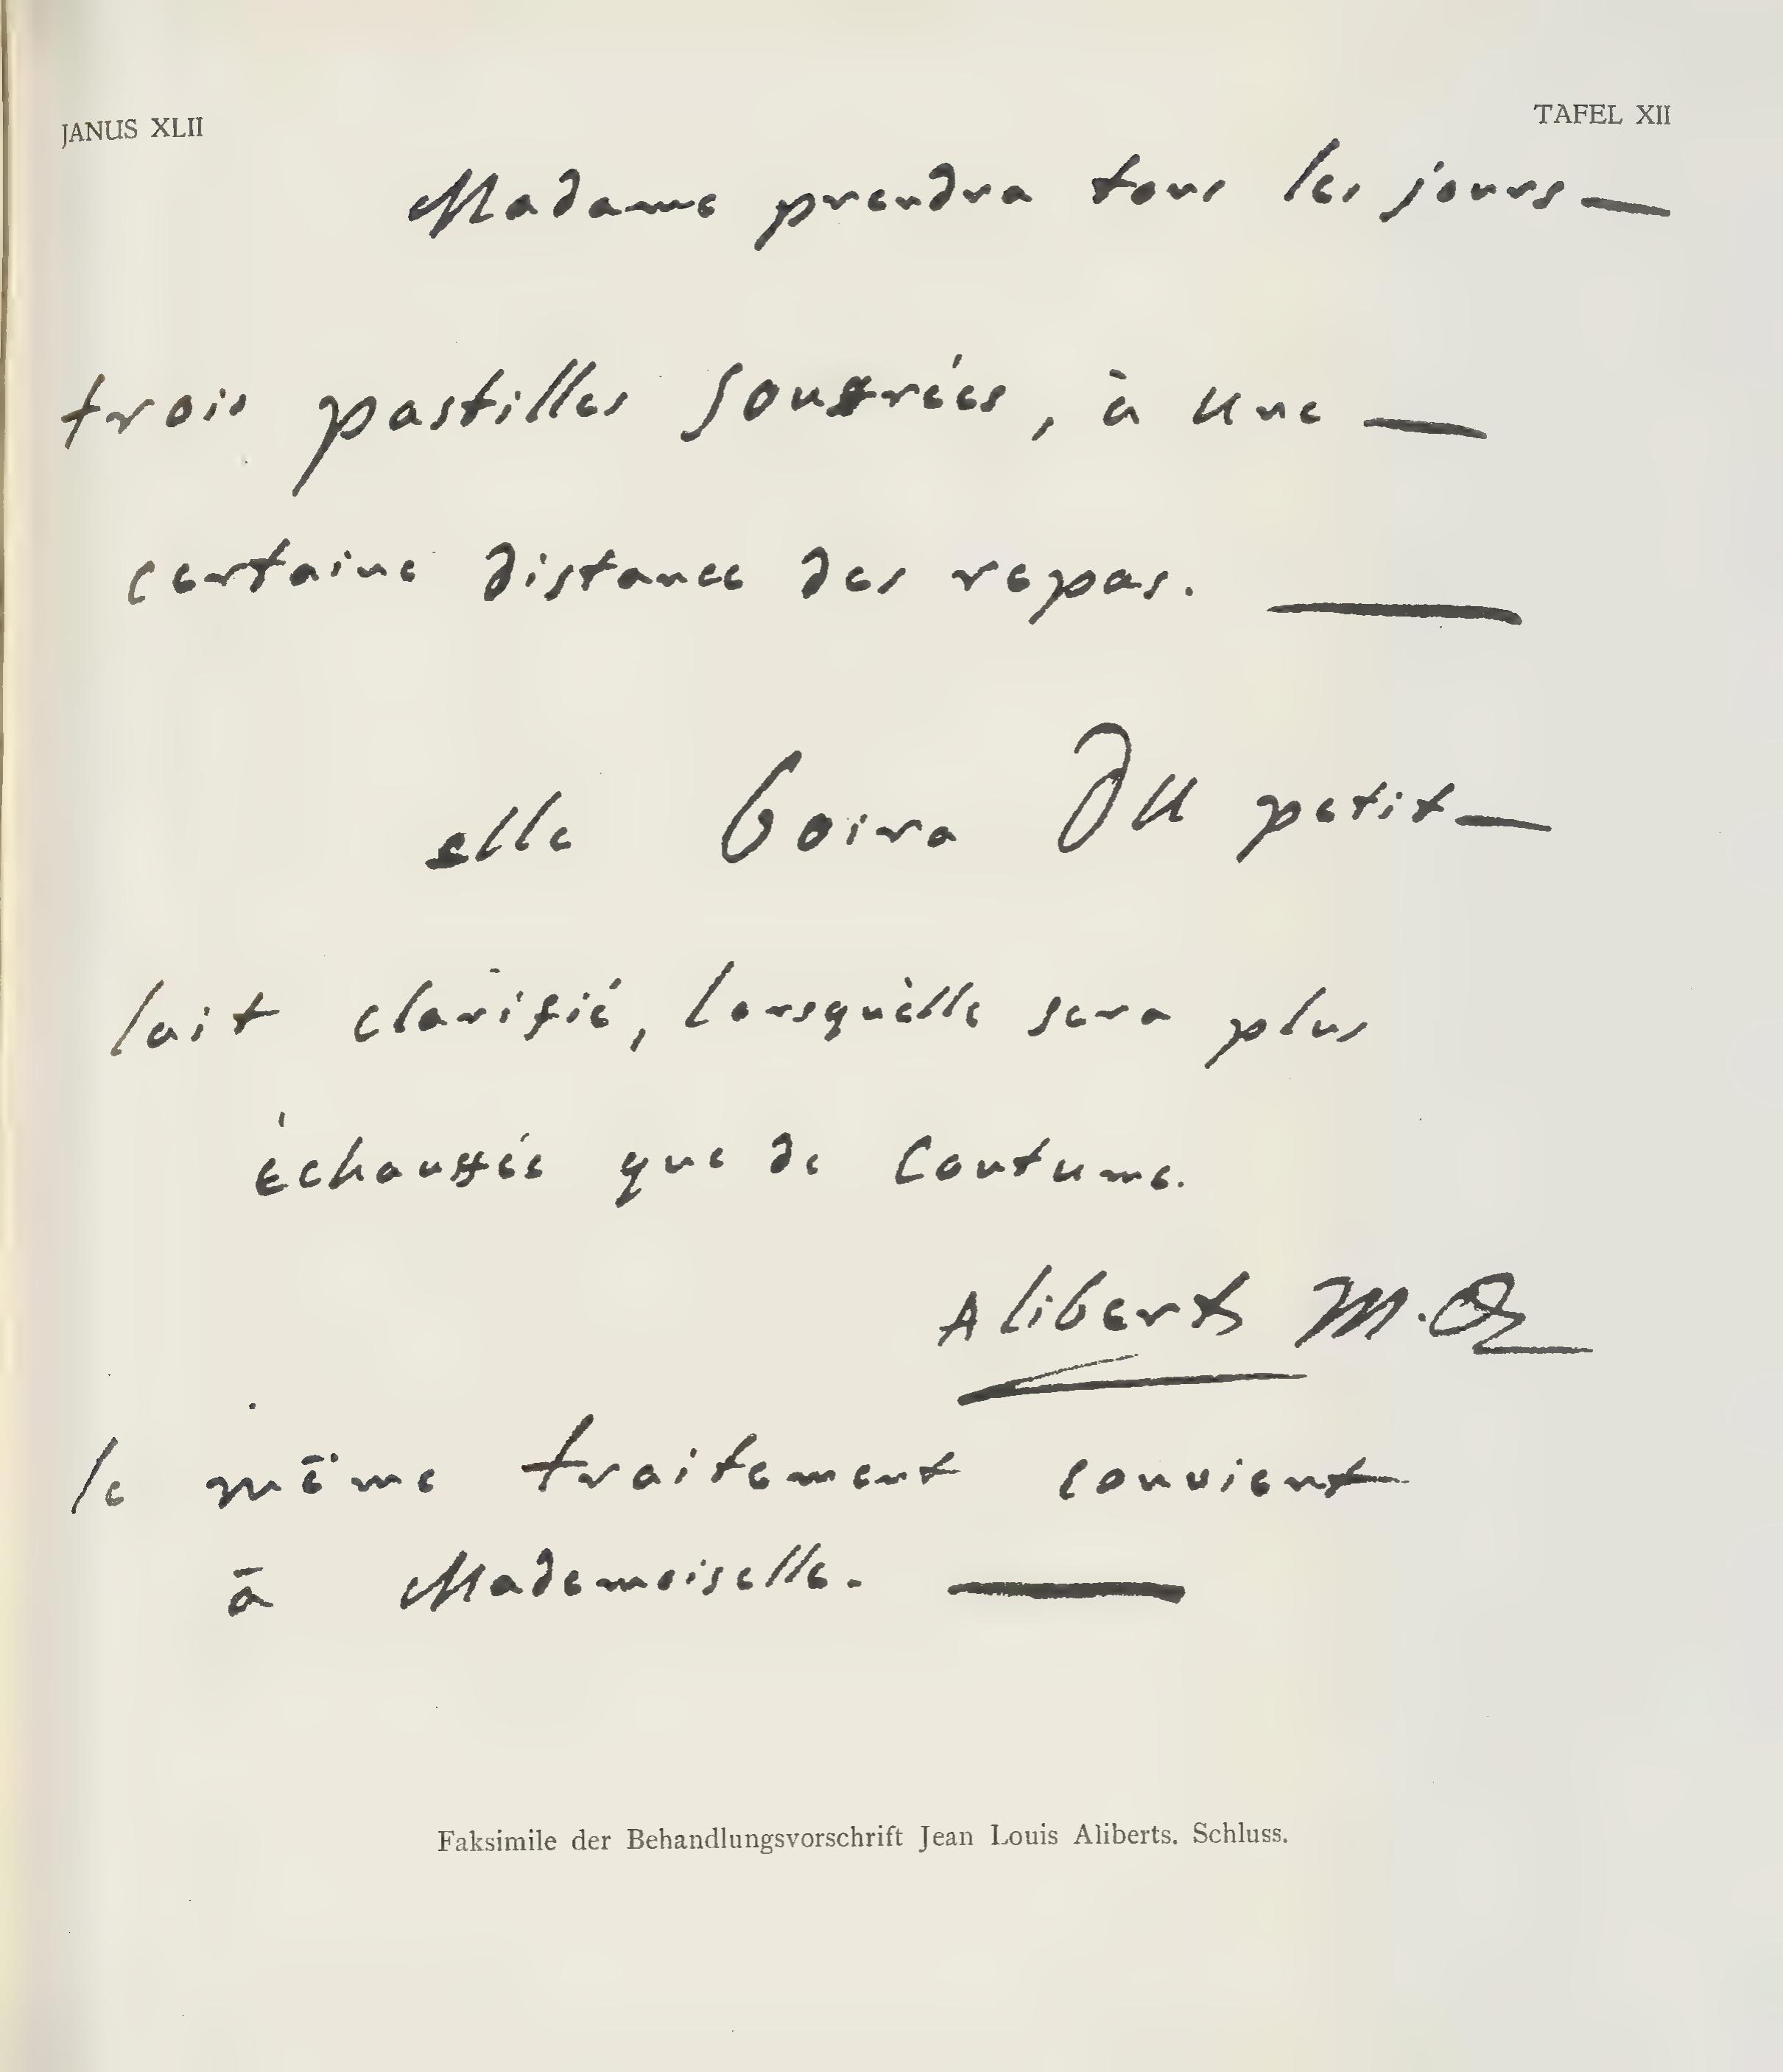 JANUS XLII
TAFEL XII
Madame prendra tous les jours —
trois pastilles souffrées, à une —
certaine distance des repas. —
elle boira du petit —
lait clarifié, lorsqu'èlle sera plus
échauffée que de coutume.
Alibert M. D
le même traitement convient
à Mademoiselle. —
Faksimile der Behandlungsvorschrift Jean Louis Aliberts. Schluss.